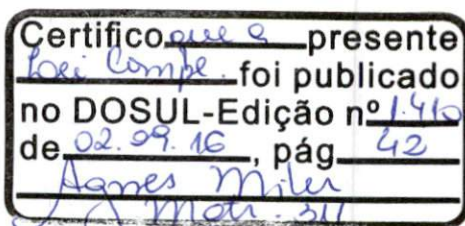 Certifico que a presente
Lei Compl. foi publicado
no DOSUL-Edição nº 1.410
de 02.09.16, pág 42
Agnes Miler
Matr. 311